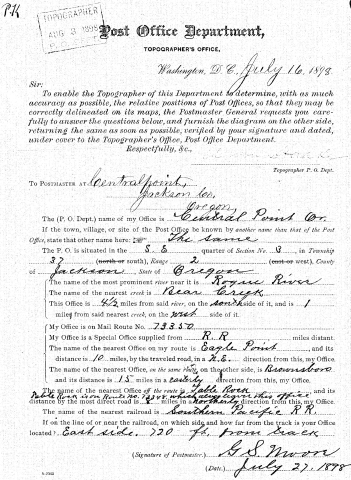 P.K
TOPOGRAPHER
AUG 3 1898
Post Office Department,
TOPOGRAPHER'S OFFICE,
Washington, D. C., July 16, 1898.
Sir:
To enable the Topographer of this Department to determine, with as much
accuracy as possible, the relative positions of Post Offices, so that they may be
correctly delineated on its maps, the Postmaster General requests you care-
fully to answer the questions below, and furnish the diagram on the other side,
returning the same as soon as possible, verified by your signature and dated,
under cover to the Topographer's Office, Post Office Department.
Respectfully, &c.,
Topographer P. O. Dept.
TO POSTMASTER AT Central point,
Jackson Co.
Oregon
The (P. O. Dept.) name of my Office is Central Point Or.
If the town, village, or site of the Post Office be known by another name than that of the Post
Office, state that other name here: The Same
The P. O. is situated in the S. E. quarter of Section No. 3, in Township
37 (north or south), Range 2 (east or west), County
of Jackson, State of Oregon
The name of the most prominent river near it is Rogue River
The name of the nearest creek is Bear Creek
This Office is 4½ miles from said river, on the south side of it, and is 1
mile from said nearest creek, on the west side of it.
My Office is on Mail Route No. 73350.
My Office is a Special Office supplied from R. R miles distant.
The name of the nearest Office on my route is Eagle Point, and its
distance is 10 miles, by the traveled road, in a N. E. direction from this, my Office.
The name of the nearest Office, on the same route, on the other side, is Brownsboro
and its distance is 15 miles in easterly direction from this, my Office.
The name of the nearest Office off the route is Table Rock, and its
Table Rock is on Route No. which also this office
distance by the most direct road is 8 miles in direction from this, my Office.
The name of the nearest railroad is Southern Pacific R R.
If on the line of or near the railroad, on which side and how far from the track is your Office
located? East side. 720 ft. from track
(Signature of Postmaster.) G S. Moon
(Date.) July 27, 1898